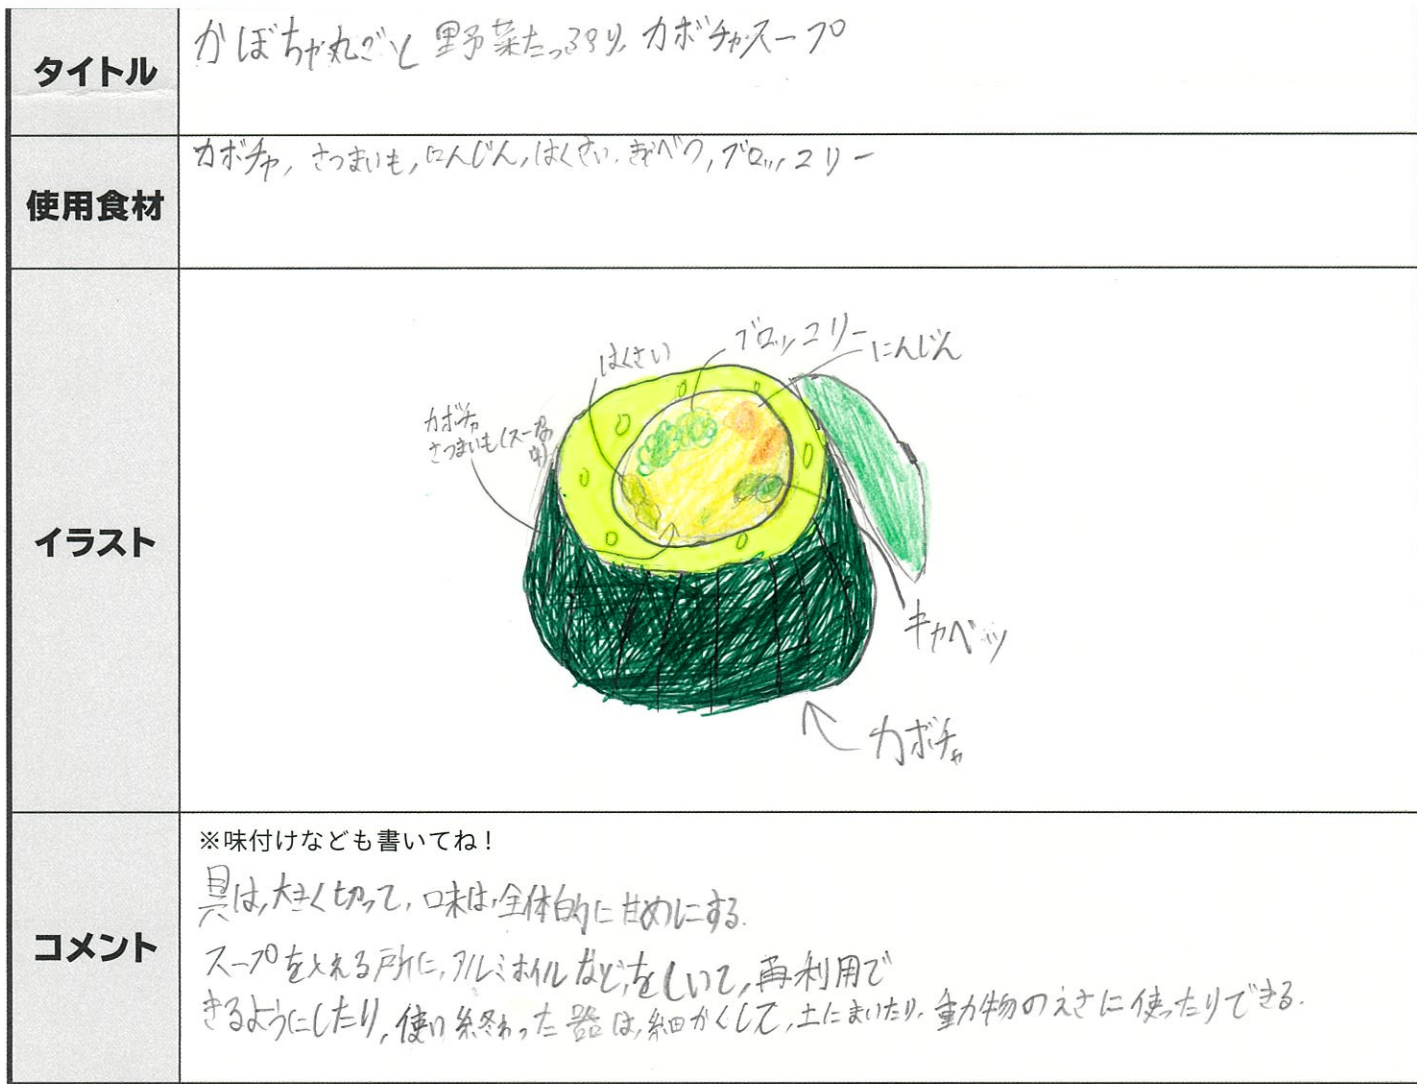 タイトル
かぼちゃ丸ごと 野菜たっぷり カボチャスープ
使用食材
カボチャ, さつまいも, にんじん, はくさい, キャベツ, ブロッコリー
イラスト
はくさい
ブロッコリー
にんじん
カボチャ
さつまいも(スープの
中)
キャベツ
カボチャ
コメント
※味付けなども書いてね!
具は, 大きく切って, 味は, 全体的に甘めにする.
スープをいれる所に, アルミホイルなど, をしいて, 再利用で
きるようにしたり, 使い終わった器は, 細かくして, 土にまいたり, 動物のえさに使ったりできる.